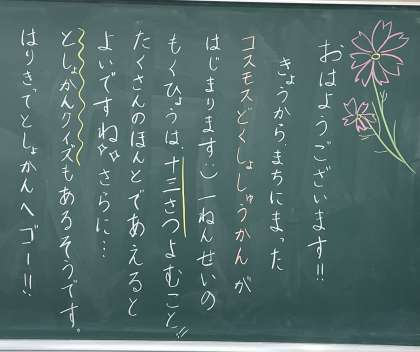 おはようございます!!
きょうから、まちにまった
コスモスどくしょしゅうかんが
はじまります:) 一ねんせいの
もくひょうは、十三さつよむこと!!
たくさんのほんとであえると
よいですね✧✧さらに…
としょかんクイズもあるそうです。
はりきってとしょかんへゴー!!